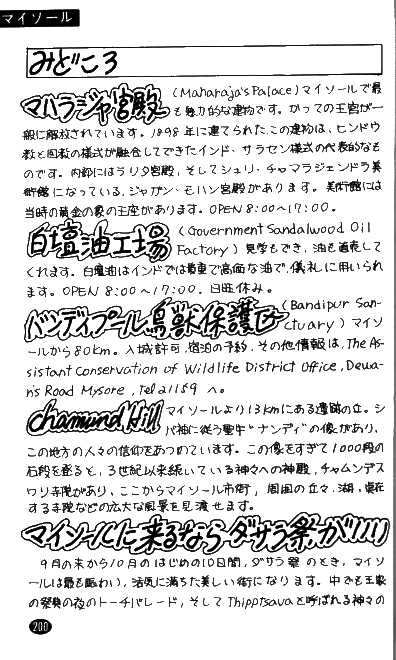 マイソール
みどころ
マハラジャ宮殿 (Maharaja's Palace) マイソールで最
も魅力的な建物です。かつての王宮が一
般に解放されています。1898年に建てられたこの建物は、ヒンドウ
教と回教の様式が融合してできたインド・サラセン様式の代表的なも
のです。内部にはラリタ宮殿、そしてシュリ・チャマラジェンドラ美
術館になっている、ジャガン・モハン宮殿があります。美術館には
当時の黄金の象の王座があります。OPEN 8:00~17:00.
白壇油工場 (Government Sandalwood Oil
Factory) 見学もでき、油も直売して
くれます。白壇油はインドでは貴重で高価な油で、儀礼に用いられ
ます。OPEN 8:00~17:00. 日旺休み。
バンディプール鳥獣保護区 (Bandipur San-
ctuary) マイソ
ールから80km。入城許可、宿泊の予約、その他情報は、The As-
sistant Conservation of Wildlife District Office, Dewa-
n's Road Mysore, Tel 21159 へ。
chamundi Hill マイソールより13kmにある遺跡の丘。シ
バ神に従う聖牛"ナンディ"の像があり、
この地方の人々の信仰をあつめています。この像をすぎて1000段の
石段を登ると、3世紀以来続いている神々への神殿、チャムンデス
ワリ寺院があり、ここからマイソール市街、周囲の丘々、湖、点在
する寺院などの広大な風景を見渡せます。
マイソールに来るならダサラ祭が!!!!
9月の末から10月のはじめの10日間、ダサラ祭のとき、マイソ
ールは最も賑わい、活気に満ちた美しい街になります。中でも王家
の祭典の夜のトーチパレード、そしてThipptsavaと呼ばれる神々の
200